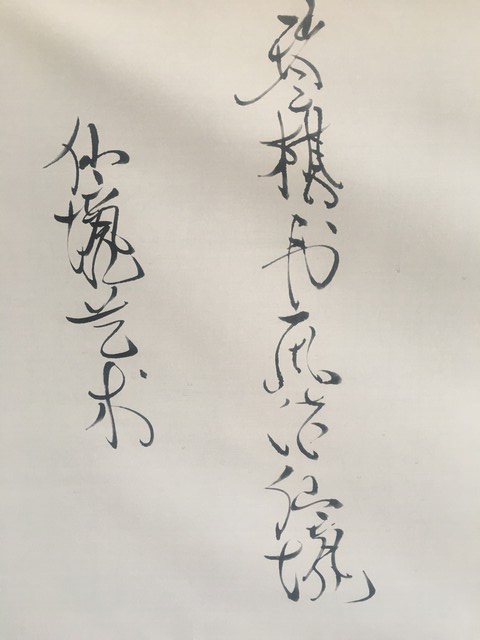 琴棋书风治仙境
仙境艺术